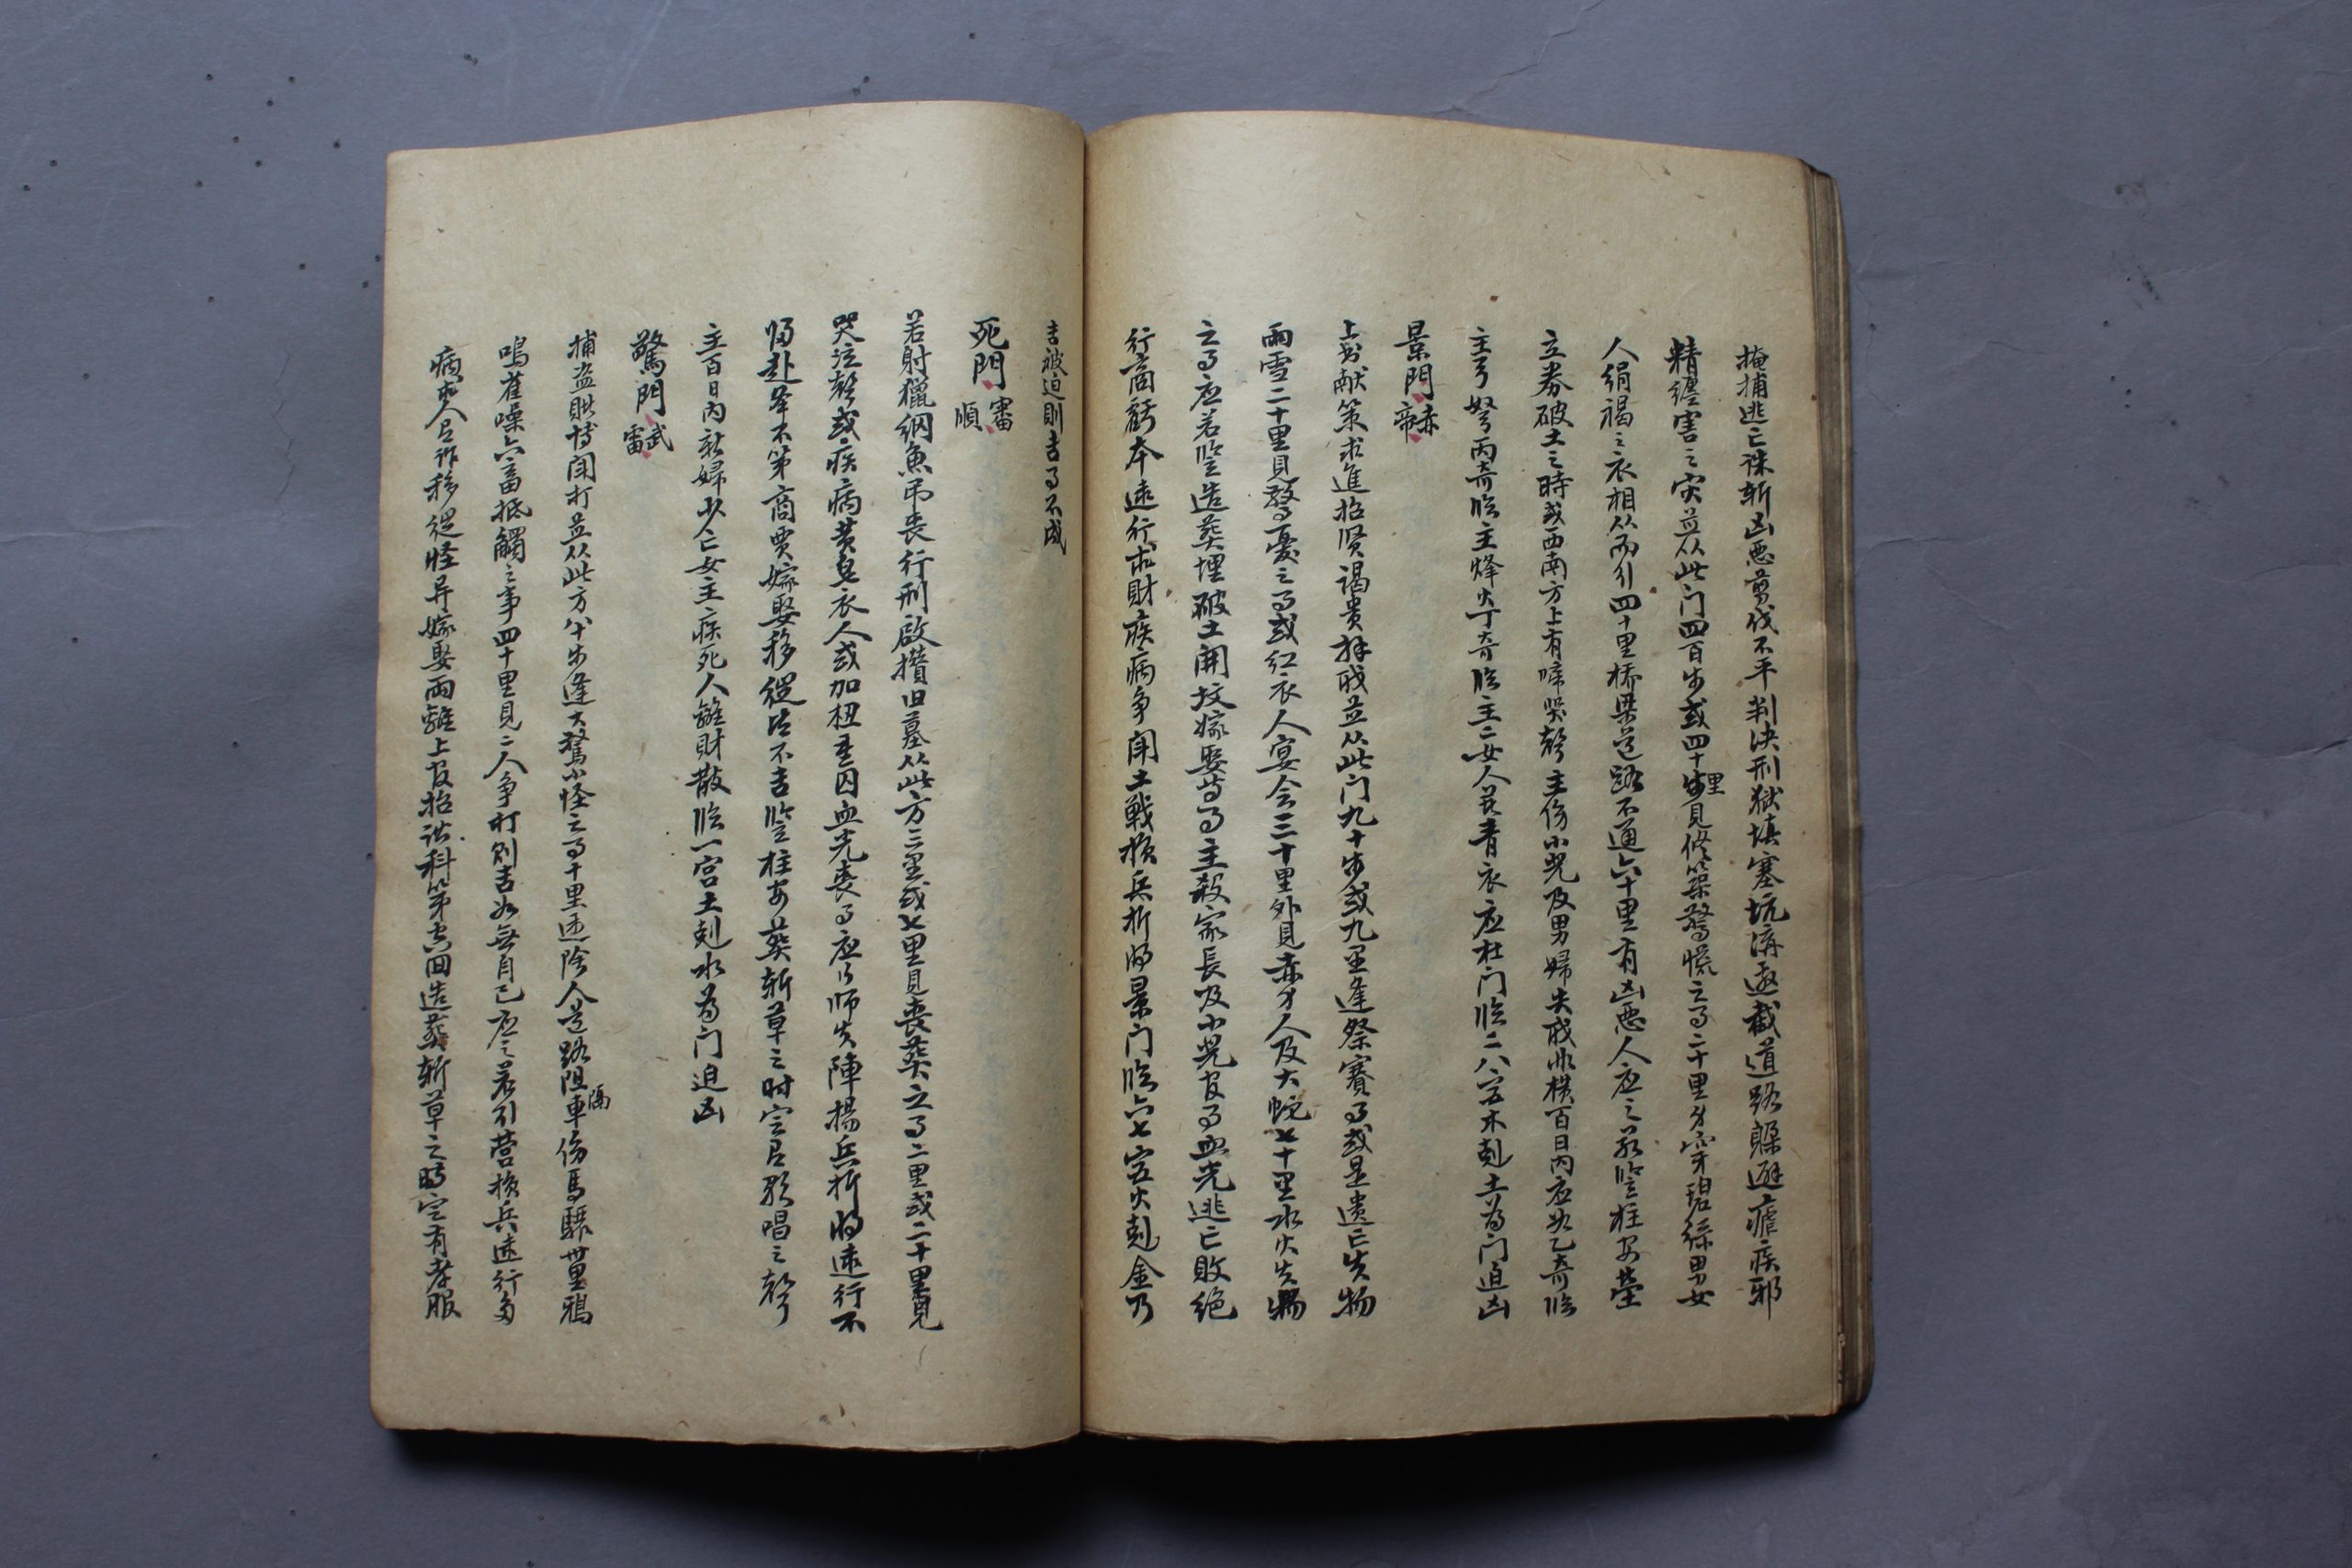 掩捕逃亡誅斬凶惡剪伐不平判決刑獄填塞坑溝遮截道路躲避瘧疾邪
精纏害之灾並从此门四百步或四十步里見修築驚慌之事二十里身穿碧綠男女
人絹褐之衣相从而引四十里橋梁道路不通六十里有凶惡人应之若竪柱安塋
立券破土之時或西南方上有啼哭声主伤小児及男婦失戒非横百日内应如乙奇临
主弓弩丙奇临主烽火丁奇临主二女人衣青衣应杜门临二八宫木剋土為门迫凶
景門 赤帝
上书献策求進招贤謁贵拜職並从此门九十步或九里逢祭賽事或是遗亡失物
雨雪二十里見驚憂之事或红衣人宴会三十里外見赤身人及大蛇七十里水火失物
之事应若竪造葬埋破土開坟嫁娶等事主殺家長及小児官事血光逃亡敗绝
行商虧本远行求財疾病争闘土戰損兵折将景门临六七宫火剋金乃
吉被迫則吉事不成
死門 審順
若射獵網魚吊丧行刑啟攢旧墓从此方二里或七里見丧葬之事二里或二十里見
哭泣声或疾病黄皂衣人或加杻枉囚血光丧事应出师失陣損兵折将远行不
归赴举不第商贾嫁娶移徙皆不吉竪柱安葬斬草之时定有歌唱之声
主百日内新婦少亡女主疾死人離財散临一宫土剋水為门迫凶
驚門 武雷
捕盗賭博闘打並从此方八十步逢大驚小怪之事十里逢陰人道路阻隔車伤馬驟廿里鴉
鳴雀噪六畜抵觸之事四十里見二人争打則吉如無自己应之若引营損兵远行多
病求人占詐移徙怪异嫁娶両離上官招訟科第空回造葬斬草之時定有孝服